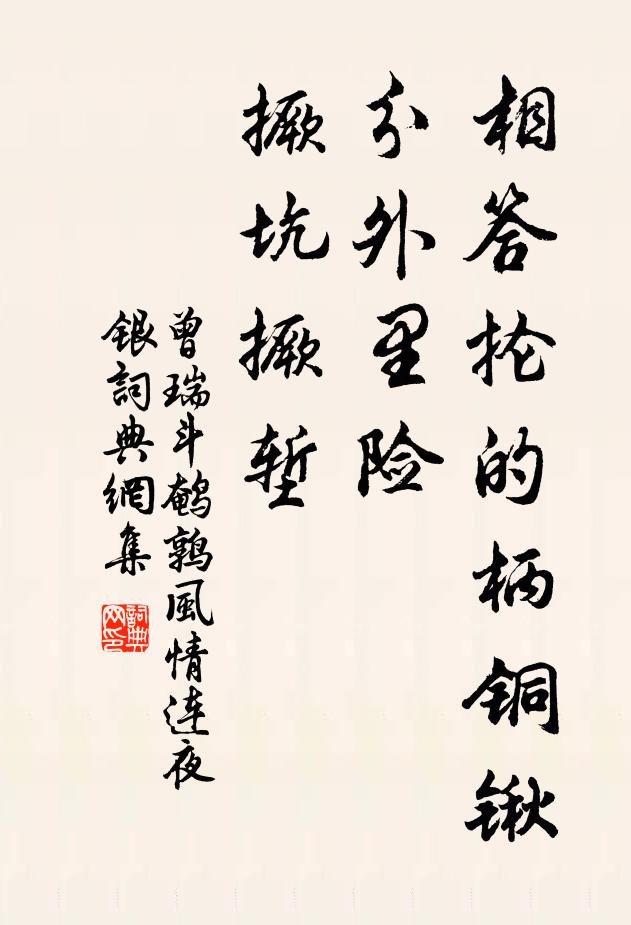 相答抡的柄铜锹
分外里险
撅坑撅堑
曾瑞斗鹌鹑風情连夜
銀詞典網集
詞典
网印